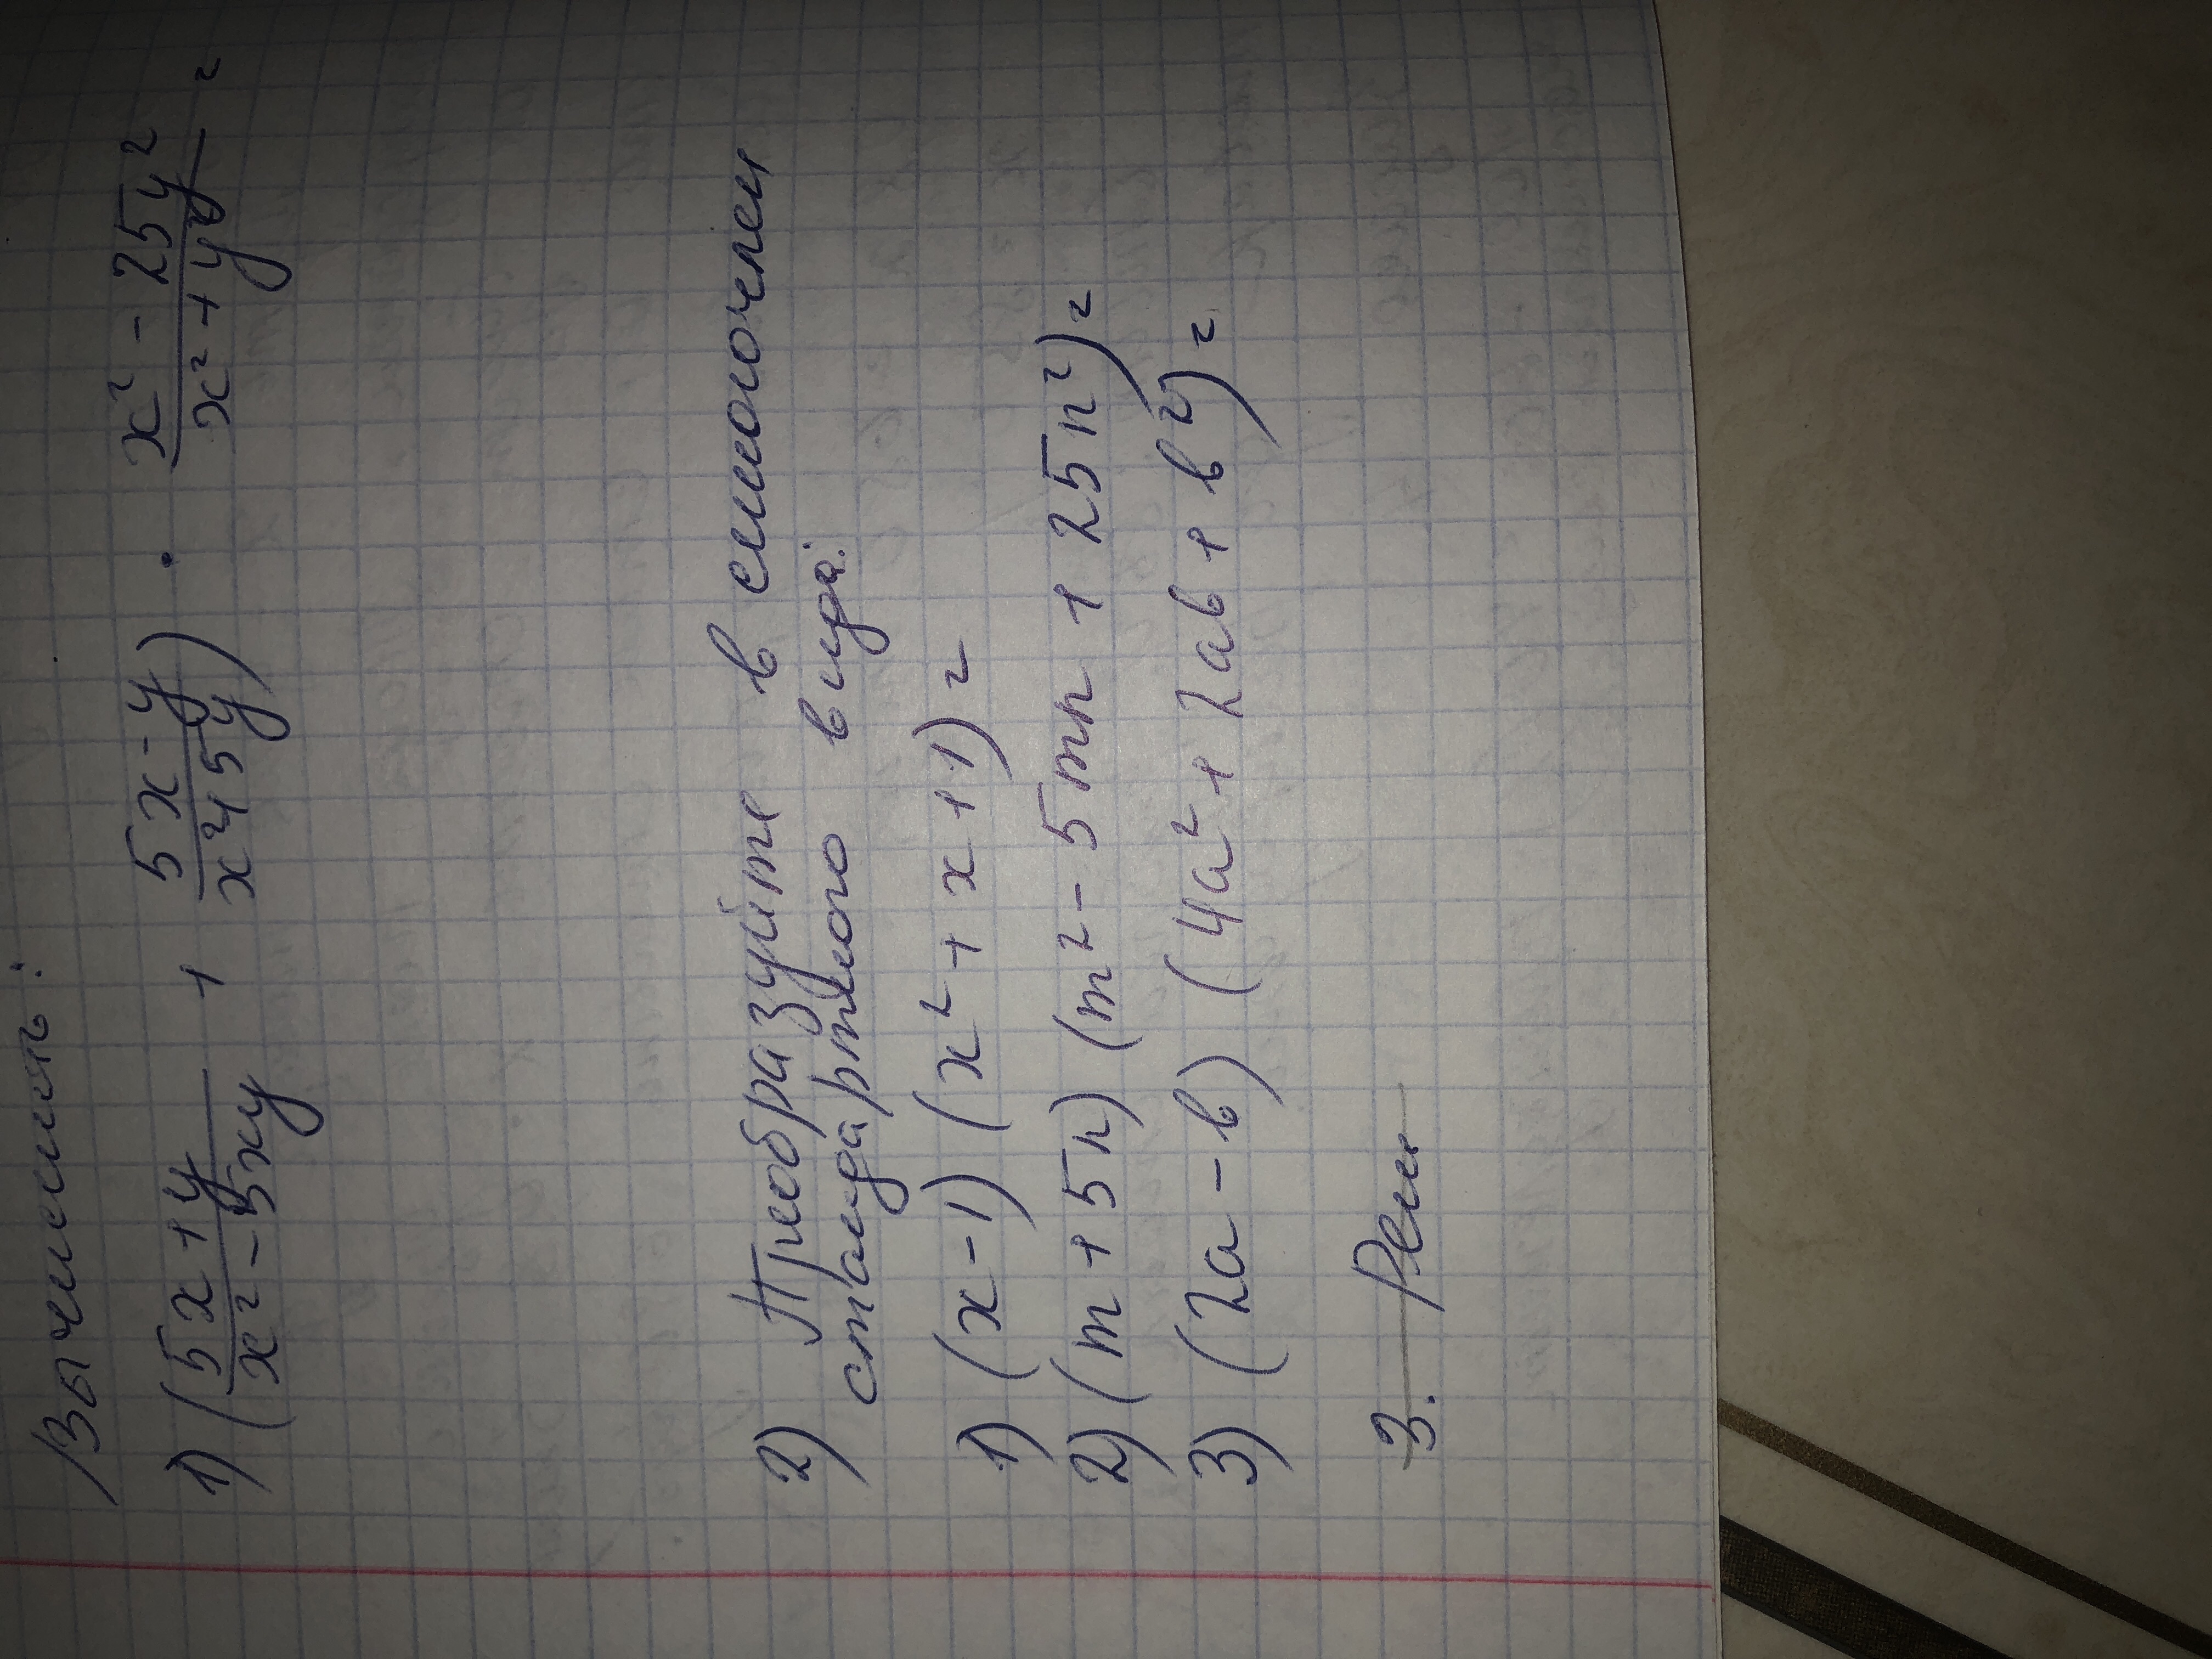 Вычислить:
1) (5x+y / x² - 5xy + 5x-y / x+5y) · x² - 25y² / x² + y² =
2) Преобразуйте в многочлен
стандартного вида:
1) (x-1) (x² + x + 1) =
2) (m + 5n) (m² - 5mn + 25n²) =
3) (2a - b) (4a² + 2ab + b²) =
3. Реш